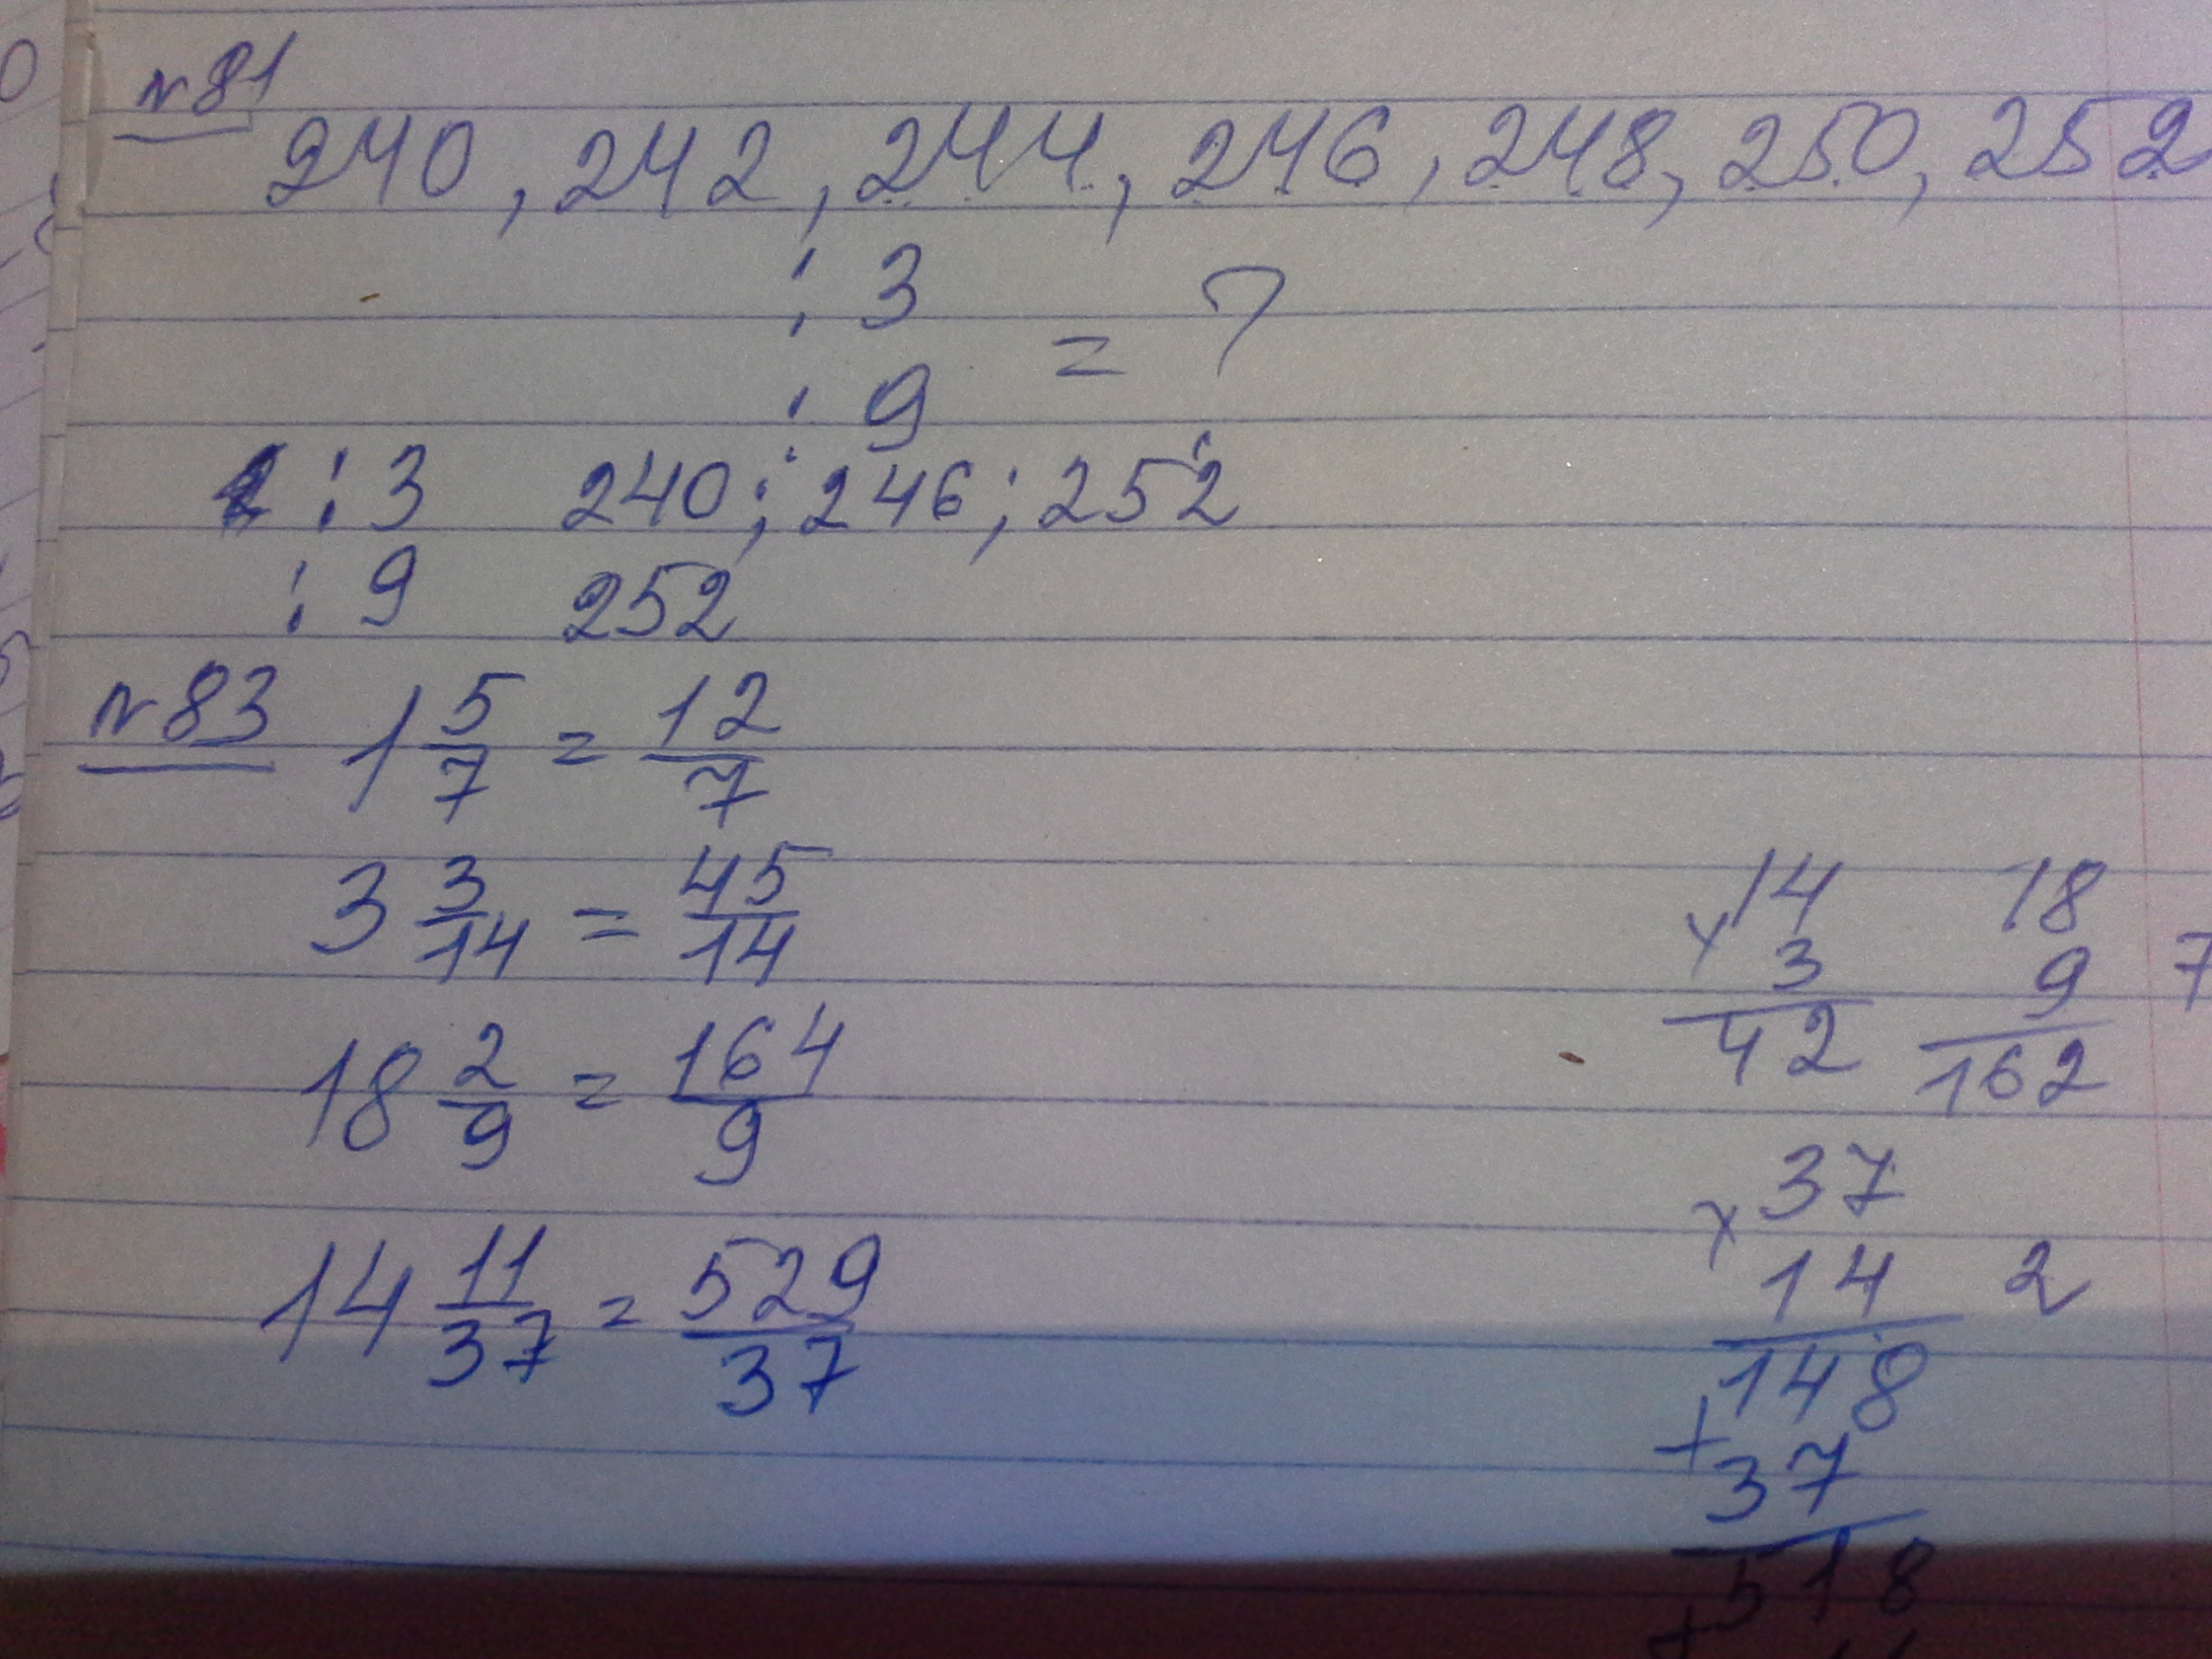 №81
240, 242, 244, 246, 248, 250, 252
: 3
= ?
: 9
: 3 240; 246; 252
: 9 252
№83 1 5/7 = 12/7
3 3/14 = 45/14
18 2/9 = 164/9
14 11/37 = 529/37
14 18
× 3 9 7
42 162
37
× 14 2
148
+ 37
518
+